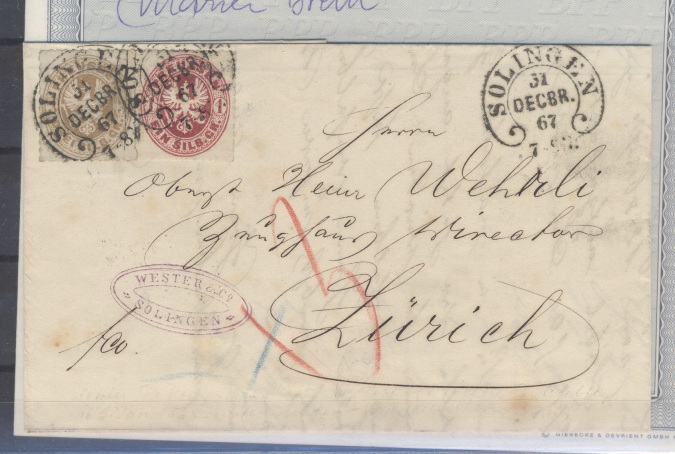 Marier Brem
SOLINGEN
31
DECBR.
67
7-8
SOLINGEN
DECBR.
67
7-8
EIN SILB.GR.
SOLINGEN
31
DECBR.
67
Herrn
Oberst Heinr Wehrli
Zeughaus Director
Zürich
WESTER & Co
SOLINGEN
fco.
GIESECKE & DEVRIENT GMBH